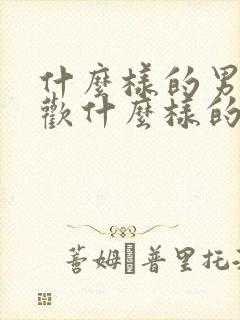 什麼樣的男
歡什麼樣的
蓍姆普里托